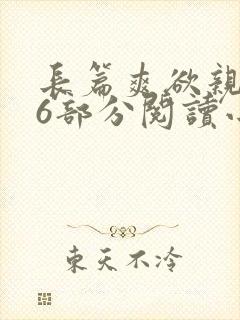 長篇爽欲親
6部分閱讀
東天不冷